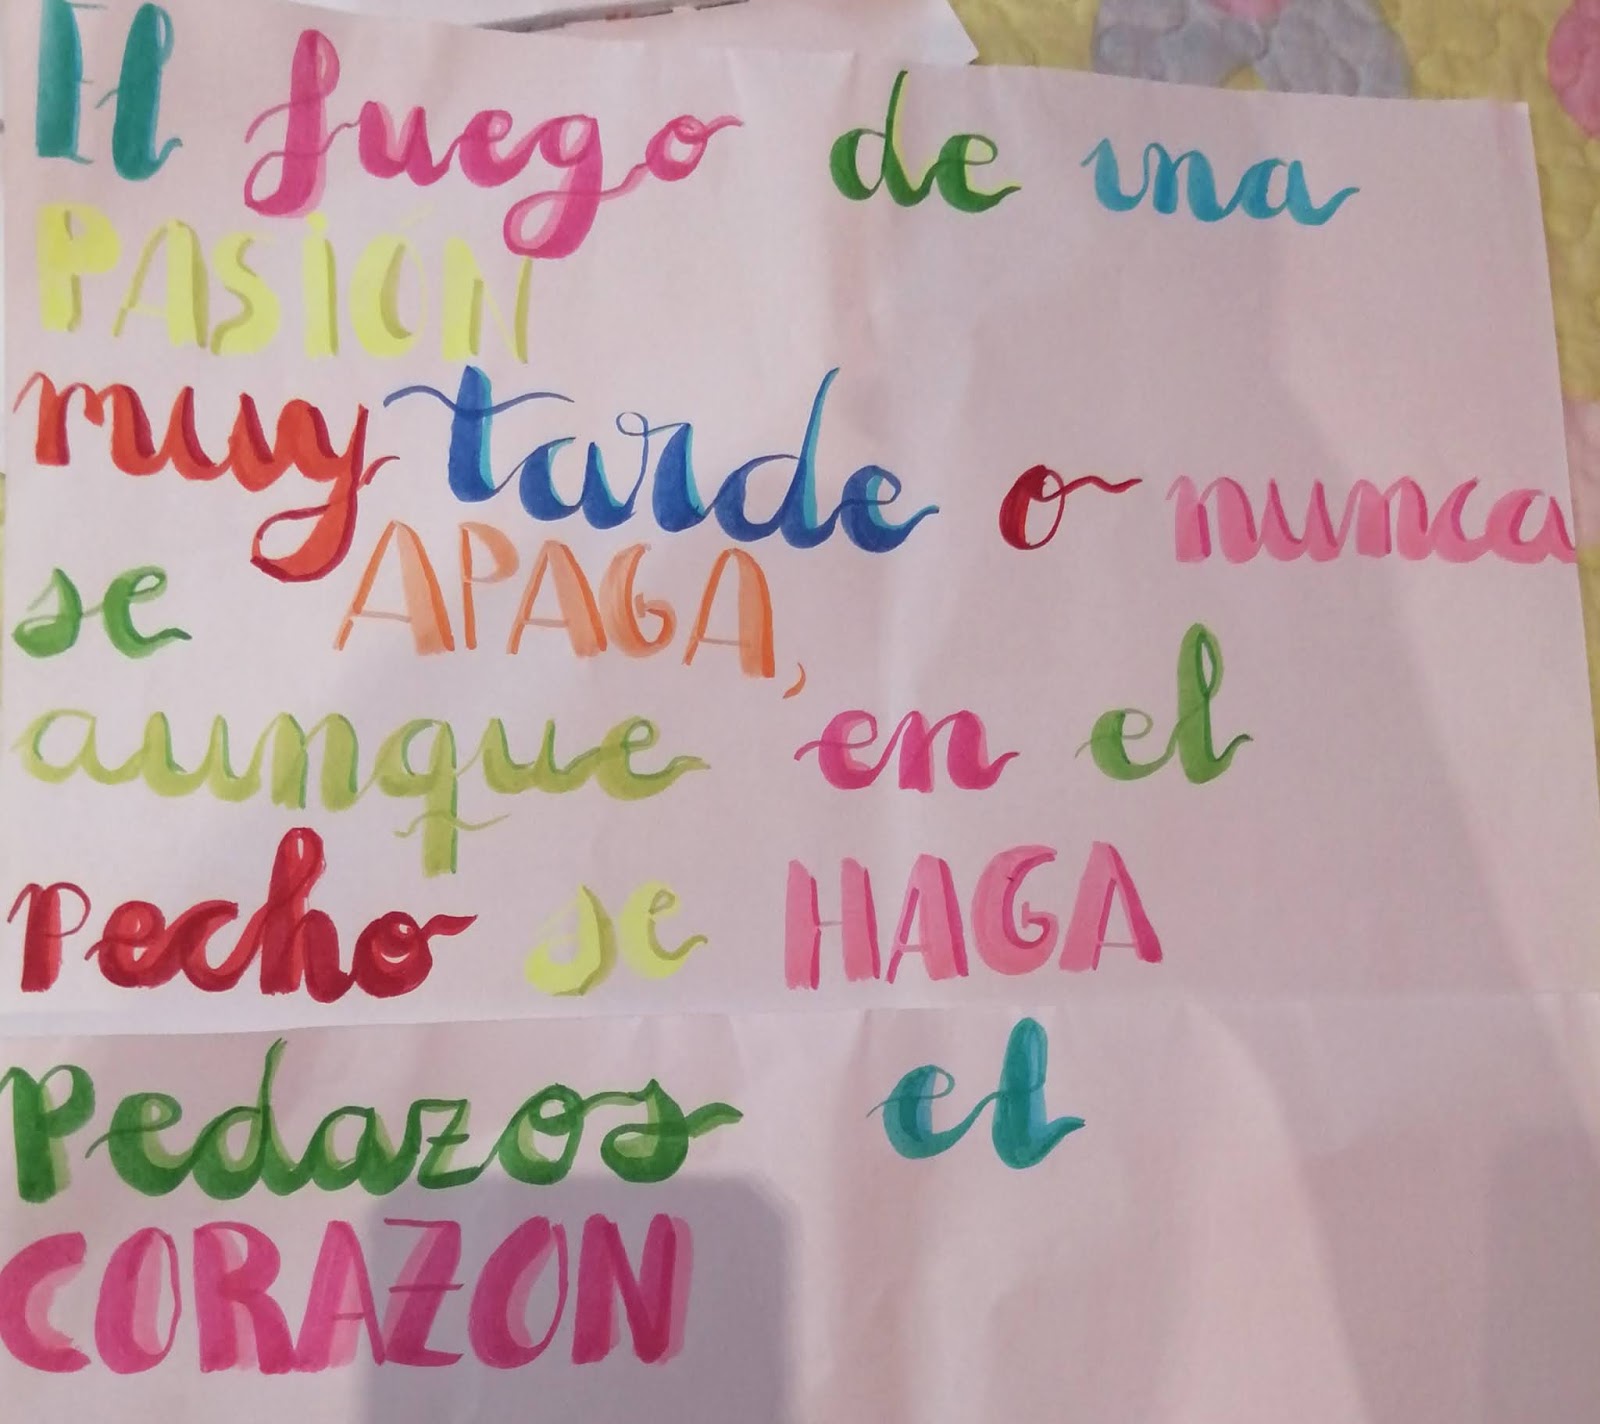 El fuego de una
PASIÓN
muy tarde o nunca
se APAGA,
aunque en el
pecho se HAGA
pedazos el
CORAZON